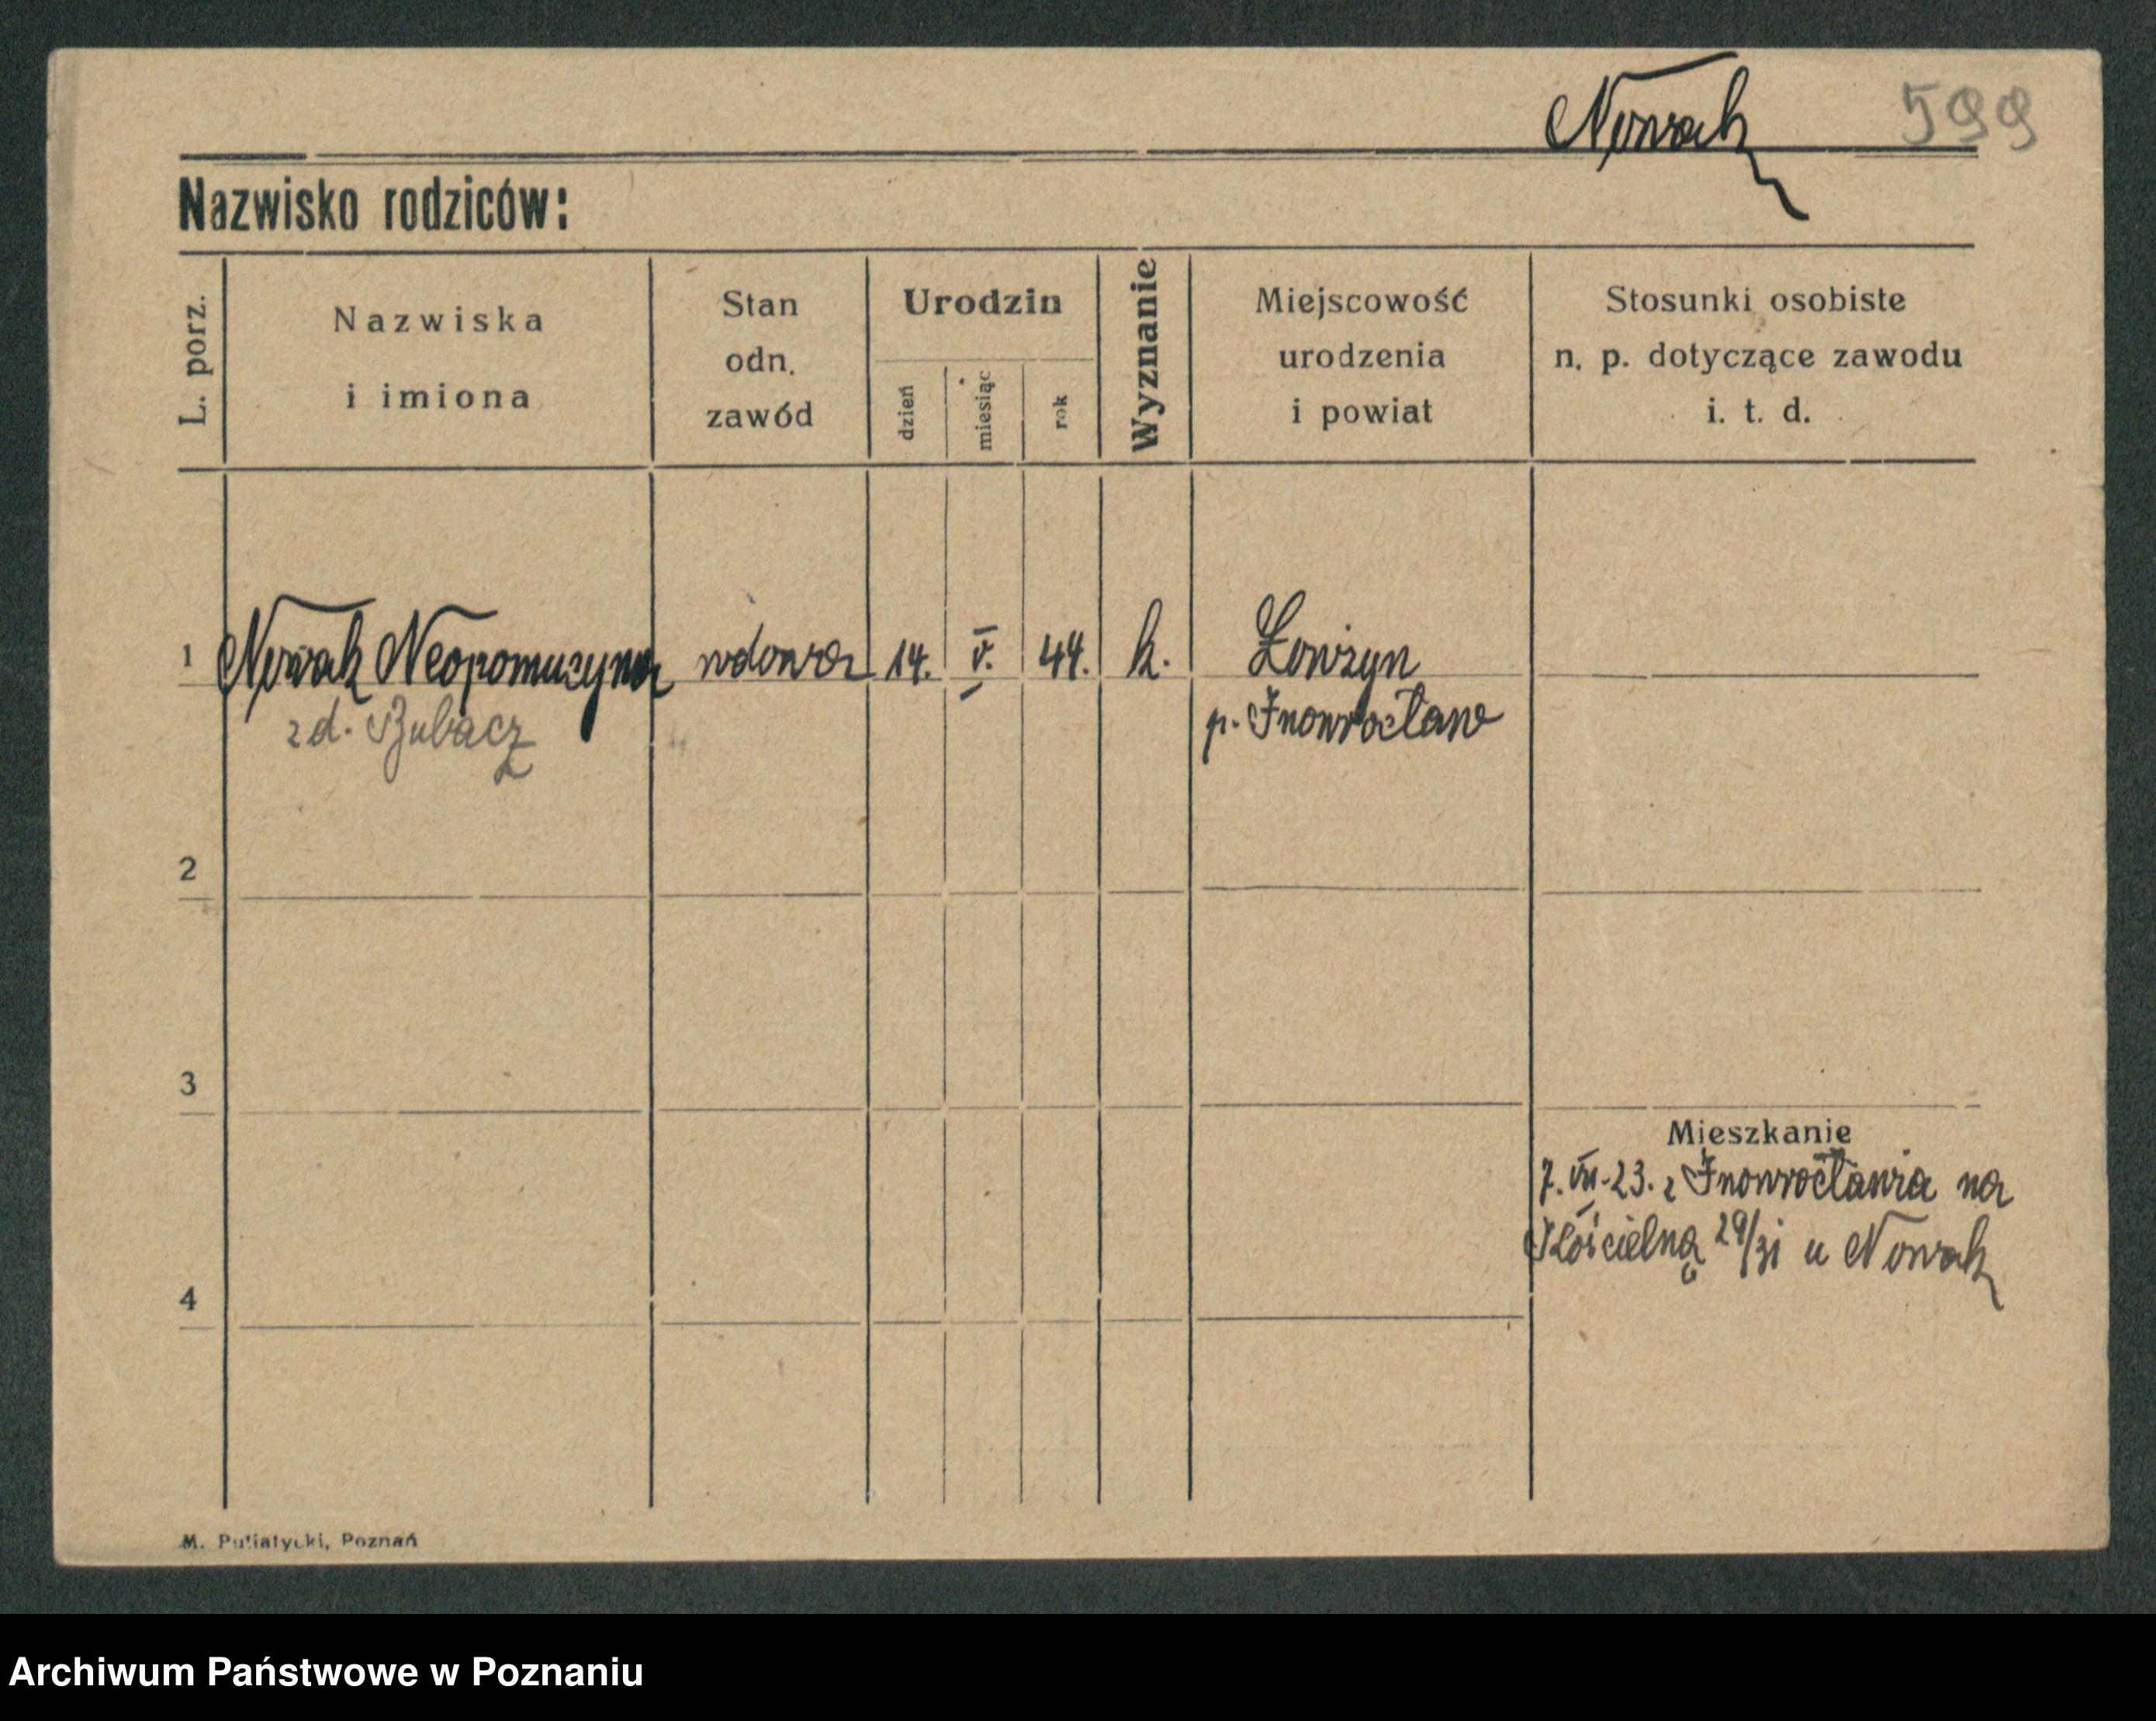 Nowak 599
Nazwisko rodziców:
L. porz.
Nazwiska
i imiona
Stan
odn.
zawód
Urodzin
dzień
miesiąc
rok
Wyznanie
Miejscowość
urodzenia
i powiat
Stosunki osobiste
n. p. dotyczące zawodu
i. t. d.
1 Nowak Neopomucyna wdowa 14. V. 44. k.
z d.
p. Inowrocław
2
3
4
Mieszkanie
7. VII. 23. z Inowrocławia na
Kościelną 29/31 u Nowak
M. Putiatycki, Poznań
Archiwum Państwowe w Poznaniu